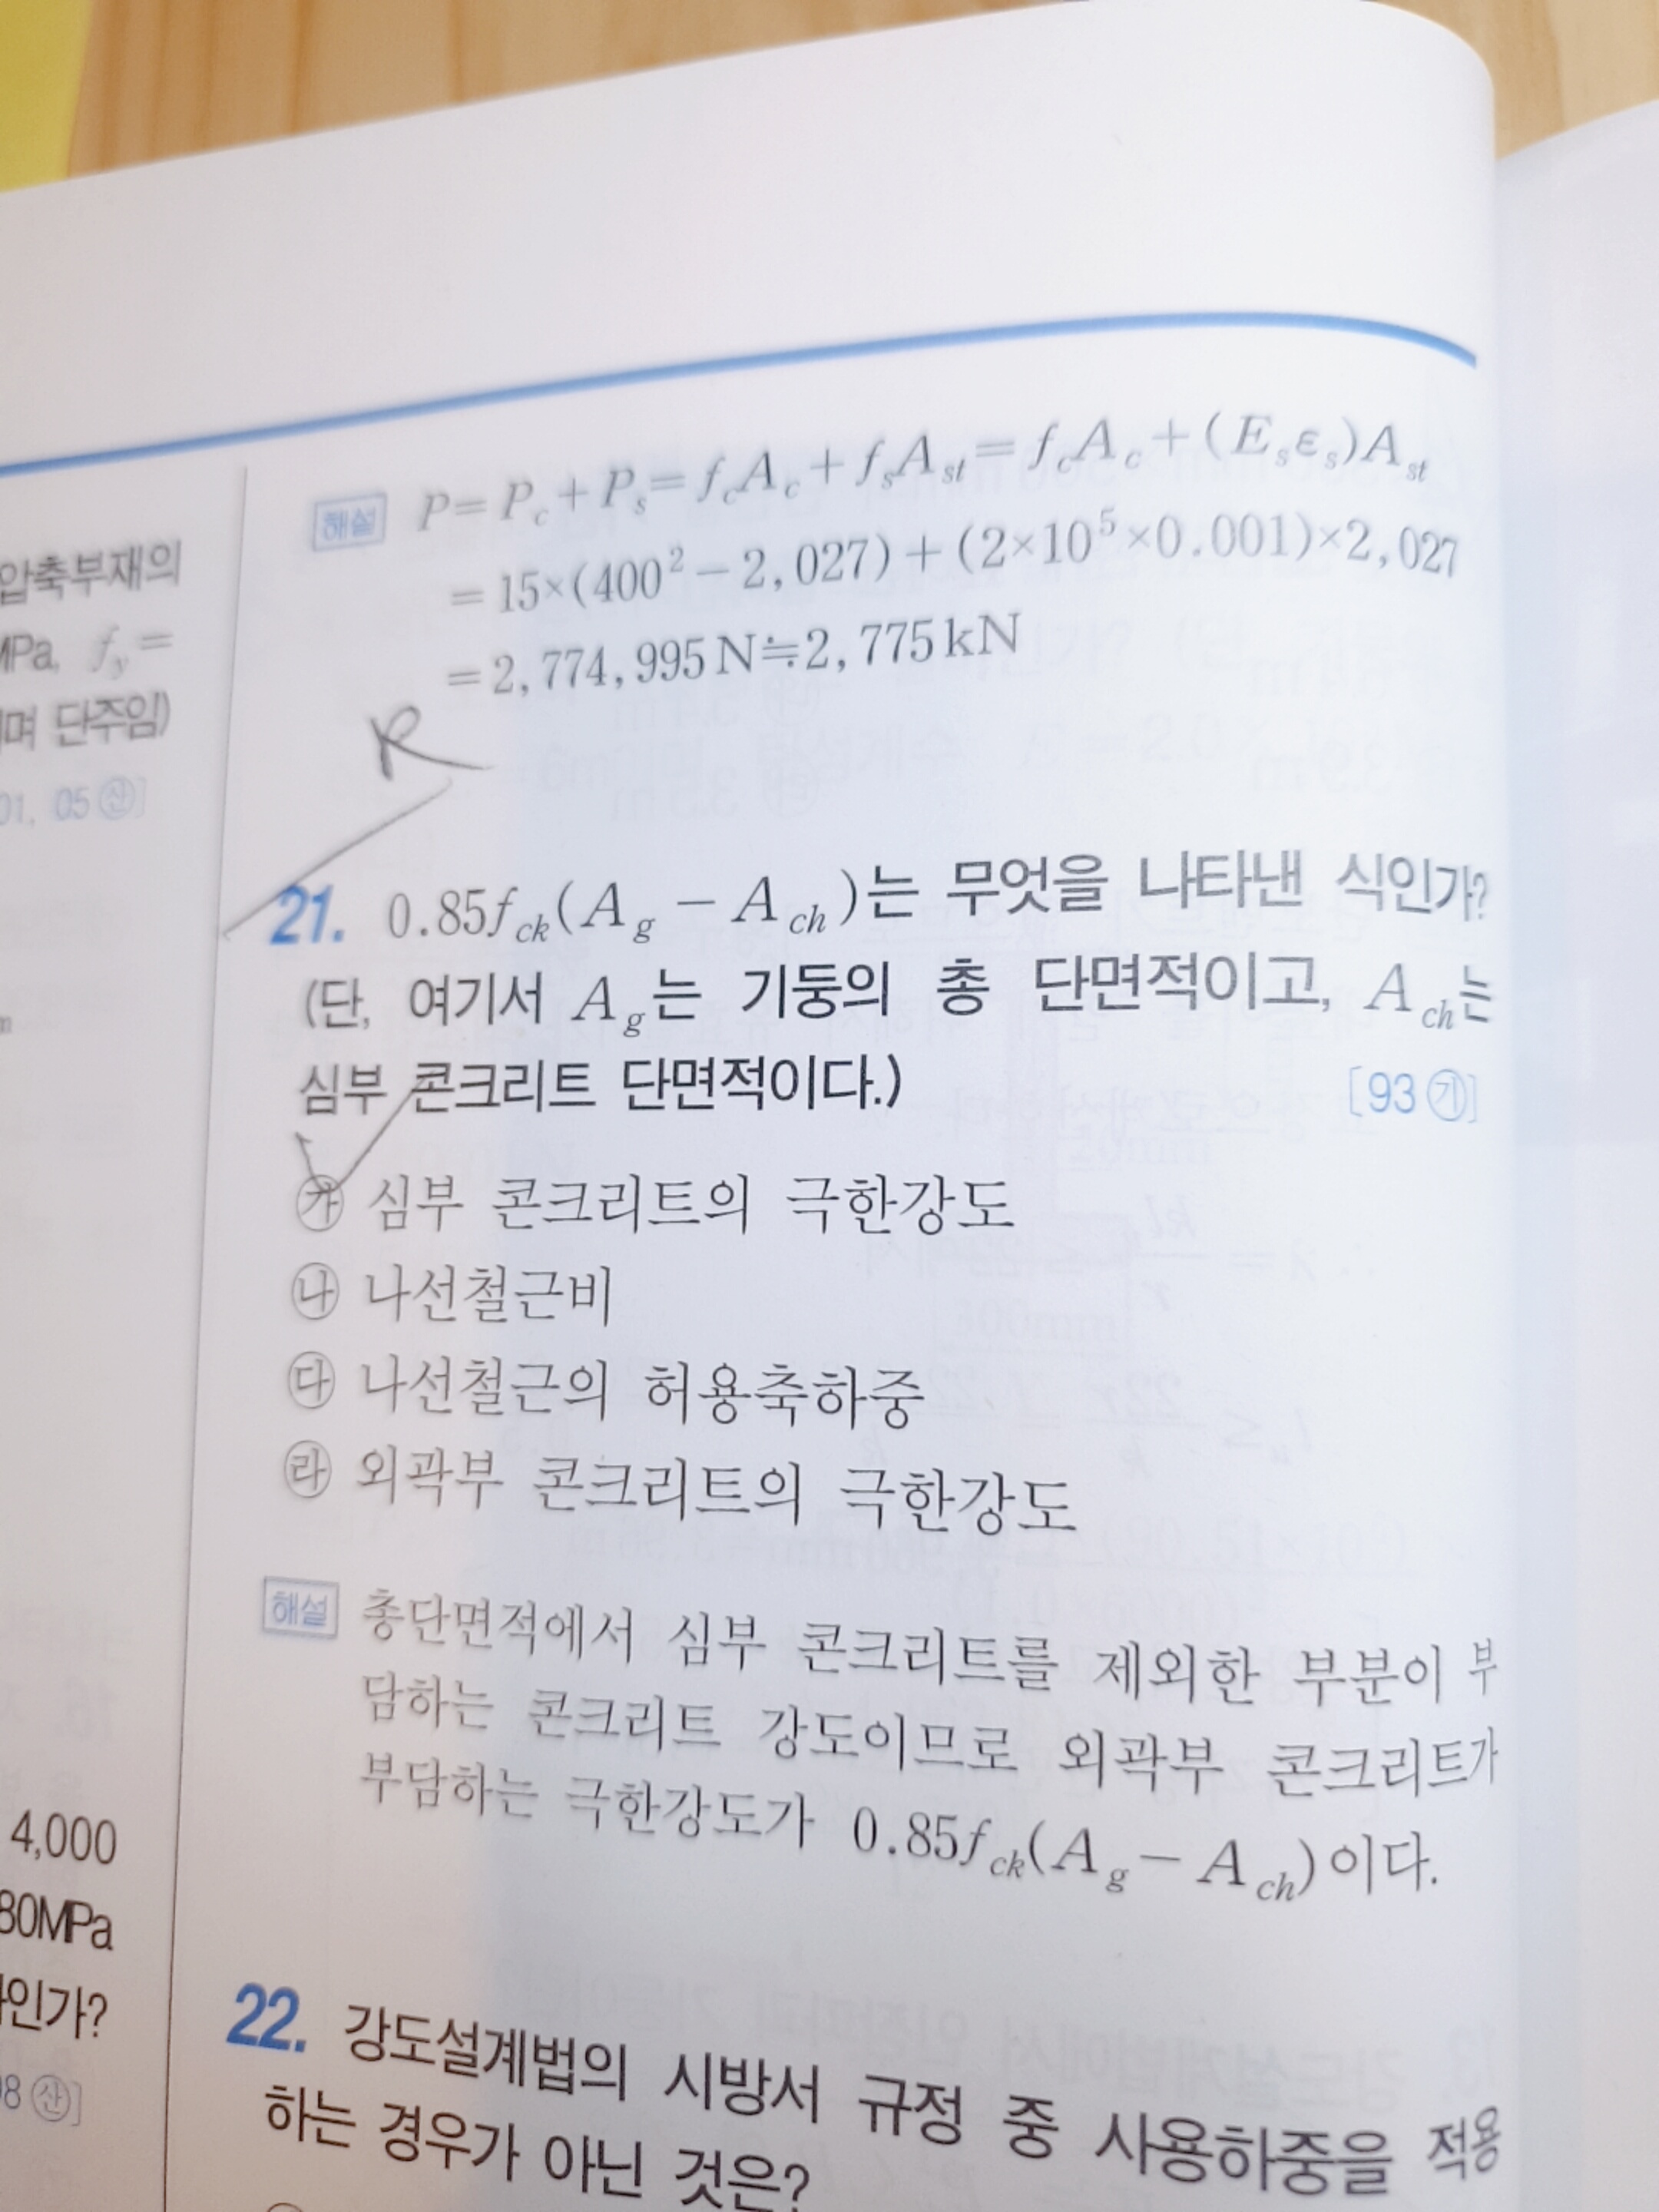 압축부재의
MPa, f_y =
며 단주임)
01, 05 ㉮산]
4,000
80MPa
인가?
98 산]
해설 P = P_c + P_s = f_c A_c + f_s A_st = f_c A_c + (E_s ε_s)A_st
= 15×(400² - 2,027) + (2×10⁵×0.001)×2,027
= 2,774,995N≒2,775kN
R
21. 0.85f_ck(A_g - A_ch)는 무엇을 나타낸 식인가?
(단, 여기서 A_g는 기둥의 총 단면적이고, A_ch는
심부 콘크리트 단면적이다.) [93 ㉮기]
㉮ 심부 콘크리트의 극한강도
㉯ 나선철근비
㉰ 나선철근의 허용축하중
㉱ 외곽부 콘크리트의 극한강도
해설 총단면적에서 심부 콘크리트를 제외한 부분이 부
담하는 콘크리트 강도이므로 외곽부 콘크리트가
부담하는 극한강도가 0.85f_ck(A_g - A_ch)이다.
22. 강도설계법의 시방서 규정 중 사용하중을 적용
하는 경우가 아닌 것은?